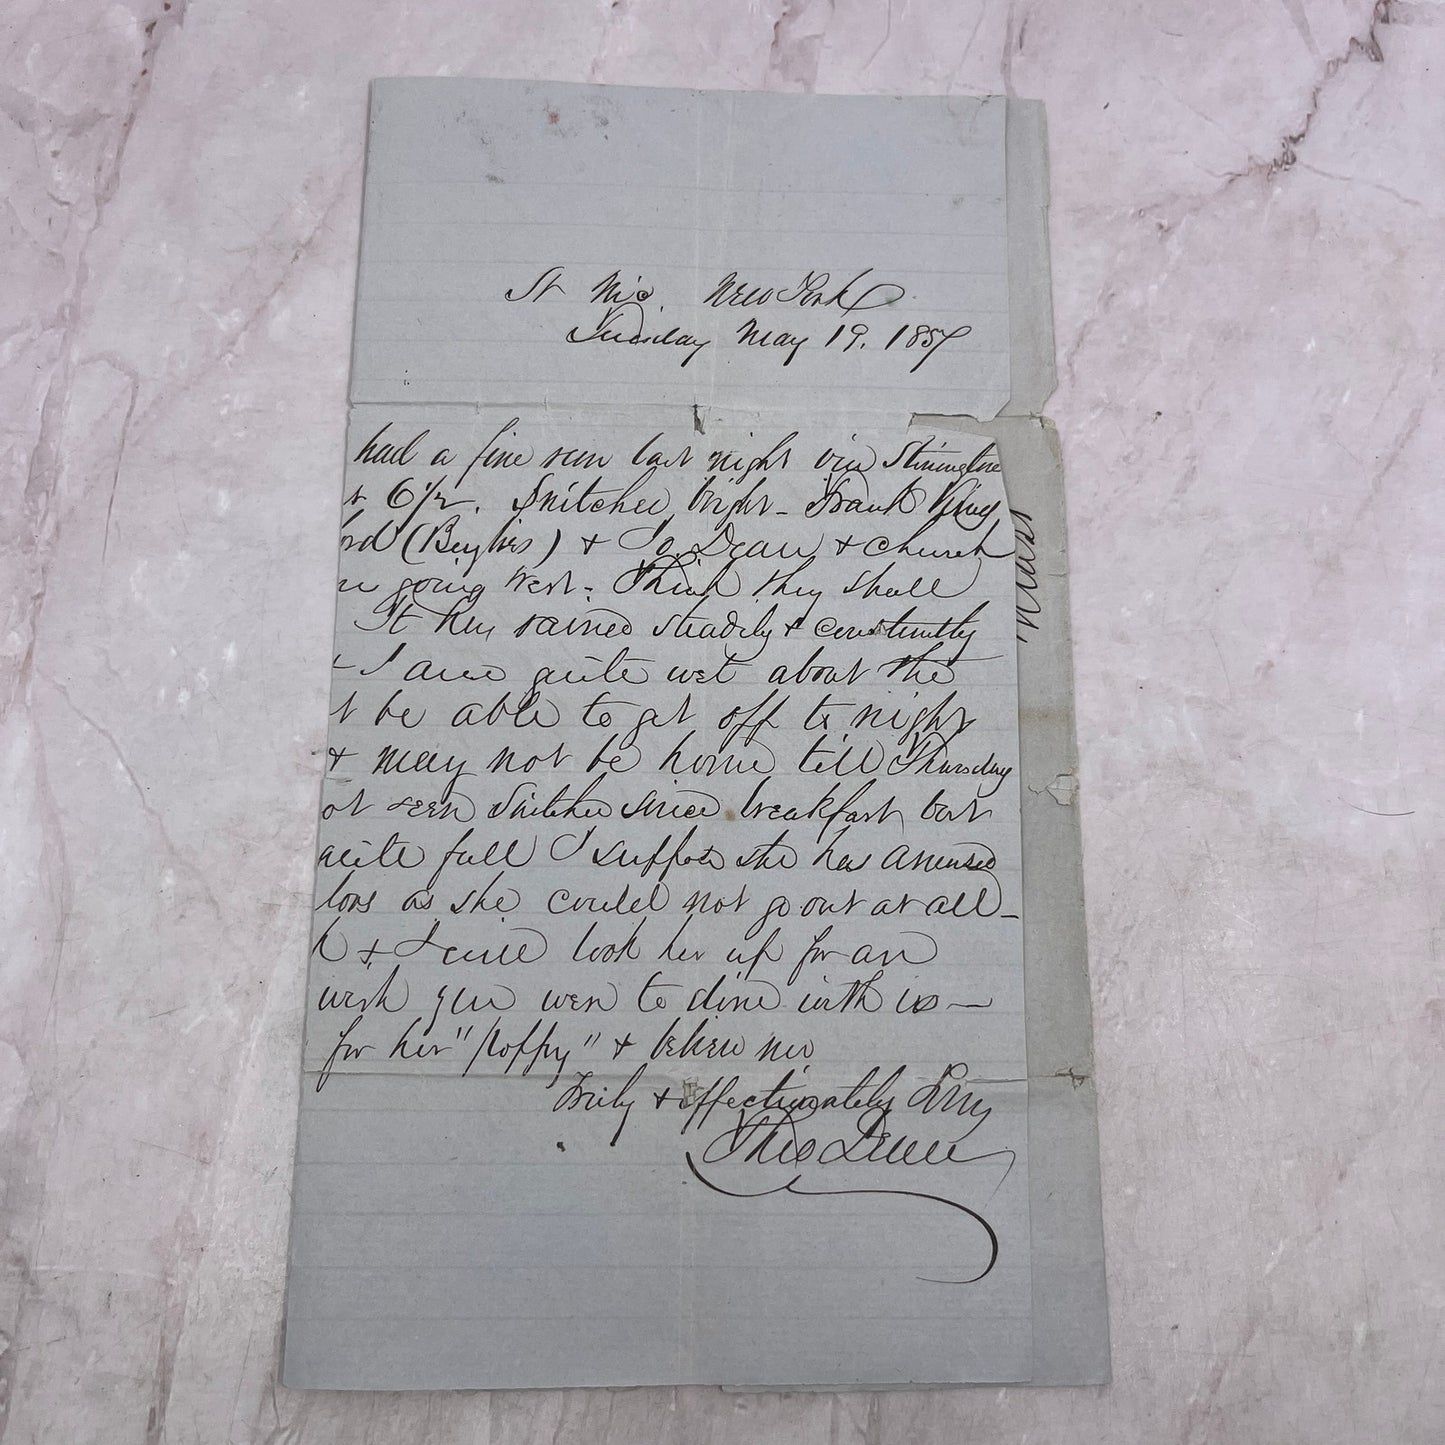 St Nic. New York
Tuesday May 19. 1857
had a fine run last night via Stonington
t 6 1/2. Snitchee bright - Frank King
ord (Baylies) & Jo. Dean & Church
going West - Think they shall
It has rained steadily & constantly
I am quite wet about the
t be able to get off to night
& may not be home till Thursday
ot seen Snitchee since breakfast but
quite full I suppose she has amused
lors as she could not go out at all -
h & I will look her up for an
wish you were to dine with us -
for her "Poppy" & believe me
Truly & affectionately
Theo Dean